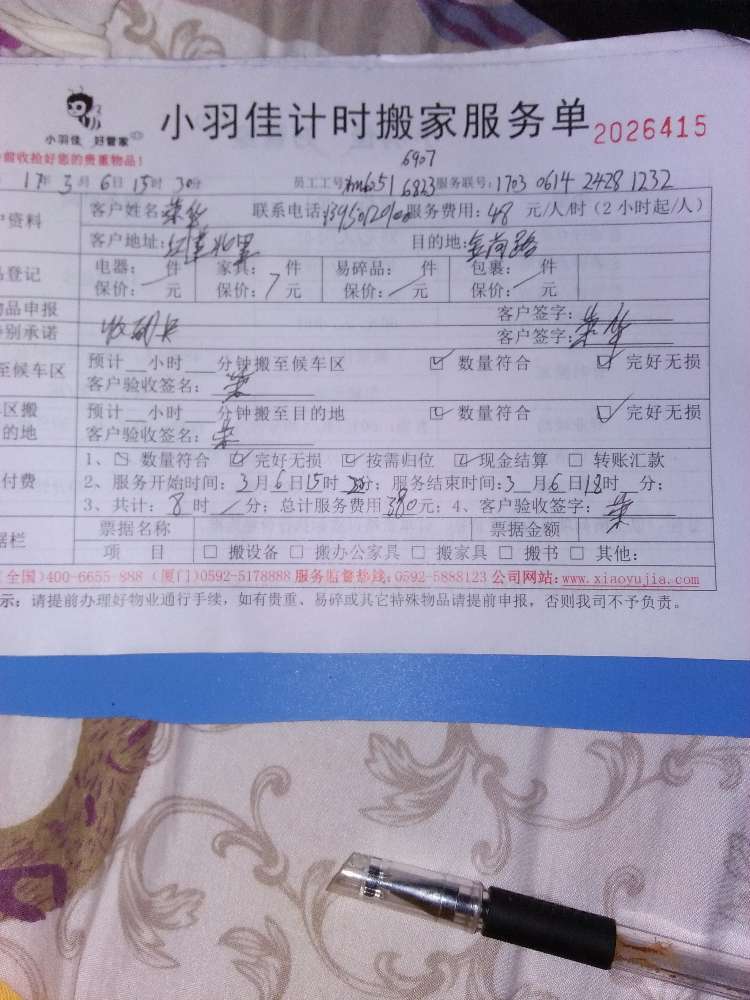 小羽佳 好管家
小羽佳计时搬家服务单 2026415
前收捡好您的贵重物品! 6907
17年3月6日15时30分 员工工号: 6823 服务联号: 1703 0614 2428 1232
资料 客户姓名: 荣华 联系电话: 服务费用: 48 元/人/时(2小时起/人)
客户地址: 目的地: 金尚路
登记 电器: 件 家具: 件 易碎品: 件 包裹: 件
保价: 元 保价: 元 保价: 元 保价: 元
物品申报 客户签字:
特别承诺 客户签字: 荣华
至候车区 预计__小时__分钟搬至候车区 ☑ 数量符合 ☑ 完好无损
客户验收签名: 荣
区搬 预计__小时__分钟搬至目的地 ☑ 数量符合 ☑ 完好无损
的地 客户验收签名: 荣
1、☑ 数量符合 ☑ 完好无损 ☑ 按需归位 ☑ 现金结算 □ 转账汇款
付费 2、服务开始时间: 3月6日15时30分; 服务结束时间: 3月6日18时__分;
3、共计: 8时 分; 总计服务费用380元; 4、客户验收签字: 荣
据栏 票据名称 票据金额
项 目 □ 搬设备 □ 搬办公家具 □ 搬家具 □ 搬书 □ 其他:
(全国)400-6655-888 (厦门)0592-5178888 服务监督热线:0592-5888123 公司网站:www.xiaoyujia.com
示: 请提前办理好物业通行手续, 如有贵重、易碎或其它特殊物品请提前申报, 否则我司不予负责。